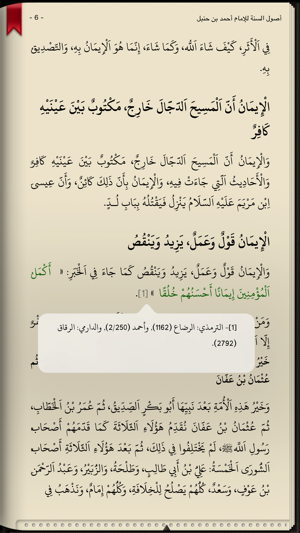 أصول السنة للإمام أحمد بن حنبل
- 6 -
فِي الْأَثَرِ، كَيْفَ شَاءَ اللَّه، وَكَمَا شَاءَ، إِنَّمَا هُوَ الْإِيمَانُ بِهِ، وَالتَّصْدِيقُ
بِهِ.
الْإِيمَانُ أَنَّ الْمَسِيحَ الدَّجَالَ خَارِجٌ، مَكْتُوبٌ بَيْنَ عَيْنَيْهِ
كَافِرٌ
وَالْإِيمَانُ أَنَّ الْمَسِيحَ الدَّجَالَ خَارِجٌ، مَكْتُوبٌ بَيْنَ عَيْنَيْهِ كَافِرٌ
وَالْأَحَادِيثُ الَّتِي جَاءَتْ فِيهِ، وَالْإِيمَانُ بِأَنَّ ذَلِكَ كَائِنٌ، وَأَنَّ عِيسَى
ابْنَ مَرْيَمَ عَلَيْهِ السَّلَامُ يَنْزِلُ فَيَقْتُلُهُ بِبَابِ لُدٍّ.
الْإِيمَانُ قَوْلٌ وَعَمَلٌ، يَزِيدُ وَيَنْقُصُ
وَالْإِيمَانُ قَوْلٌ وَعَمَلٌ، يَزِيدُ وَيَنْقُصُ كَمَا جَاءَ فِي الْخَبَرِ: « أَكْمَلُ
الْمُؤْمِنِينَ إِيمَانًا أَحْسَنُهُمْ خُلُقًا » [1].
[1]- الترمذي: الرضاع (1162), وأحمد (2/250), والدارمي: الرقاق
(2792).
عُثْمَانُ بْنُ عَفَّانَ
وَخَيْرُ هَذِهِ الْأُمَّةِ بَعْدَ نَبِيِّهَا أَبُو بَكْرٍ الصِّدِّيقُ، ثُمَّ عُمَرُ بْنُ الْخَطَّابِ،
ثُمَّ عُثْمَانُ بْنُ عَفَّانَ نُقَدِّمُ هَؤُلَاءِ الثَّلَاثَةَ كَمَا قَدَّمَهُمْ أَصْحَابُ
رَسُولِ اللَّهِ ﷺ، لَمْ يَخْتَلِفُوا فِي ذَلِكَ، ثُمَّ بَعْدَ هَؤُلَاءِ الثَّلَاثَةِ أَصْحَابُ
الشُّورَى الْخَمْسَةُ: عَلِيُّ بْنُ أَبِي طَالِبٍ، وَطَلْحَةُ، وَالزُّبَيْرُ، وَعَبْدُ الرَّحْمَنِ
بْنُ عَوْفٍ، وَسَعْدٌ، كُلُّهُمْ يَصْلُحُ لِلْخِلَافَةِ، وَكُلُّهُمْ إِمَامٌ، وَنَذْهَبُ فِي